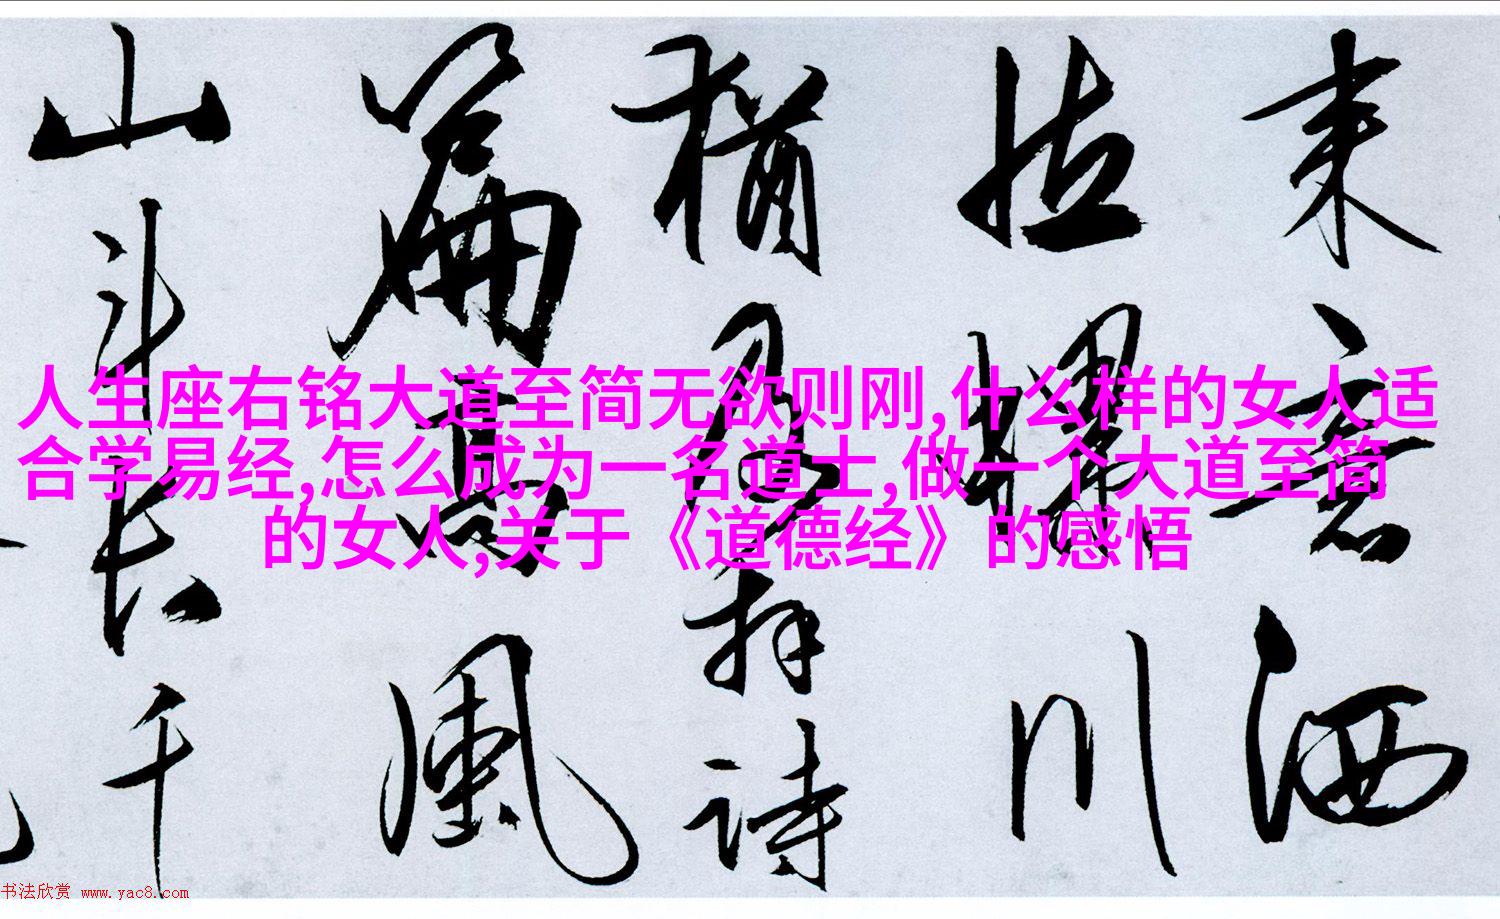 人生座右铭大道至简无欲则刚,什么样的女人适
合学易经,怎么成为一名道士,做一个大道至简
的女人,关于《道德经》的感悟
来意洒
川
見拜詩
篇高風
山斗长千
书法欣赏 www.yac8.com